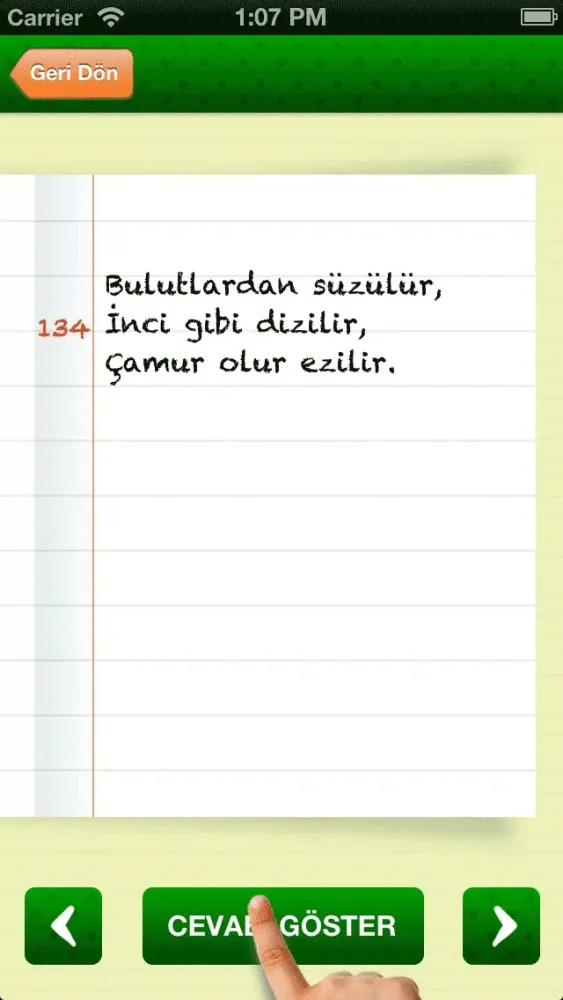 Carrier 1:07 PM
Geri Dön
Bulutlardan süzülür,
134 İnci gibi dizilir,
Çamur olur ezilir.
CEVABI GÖSTER